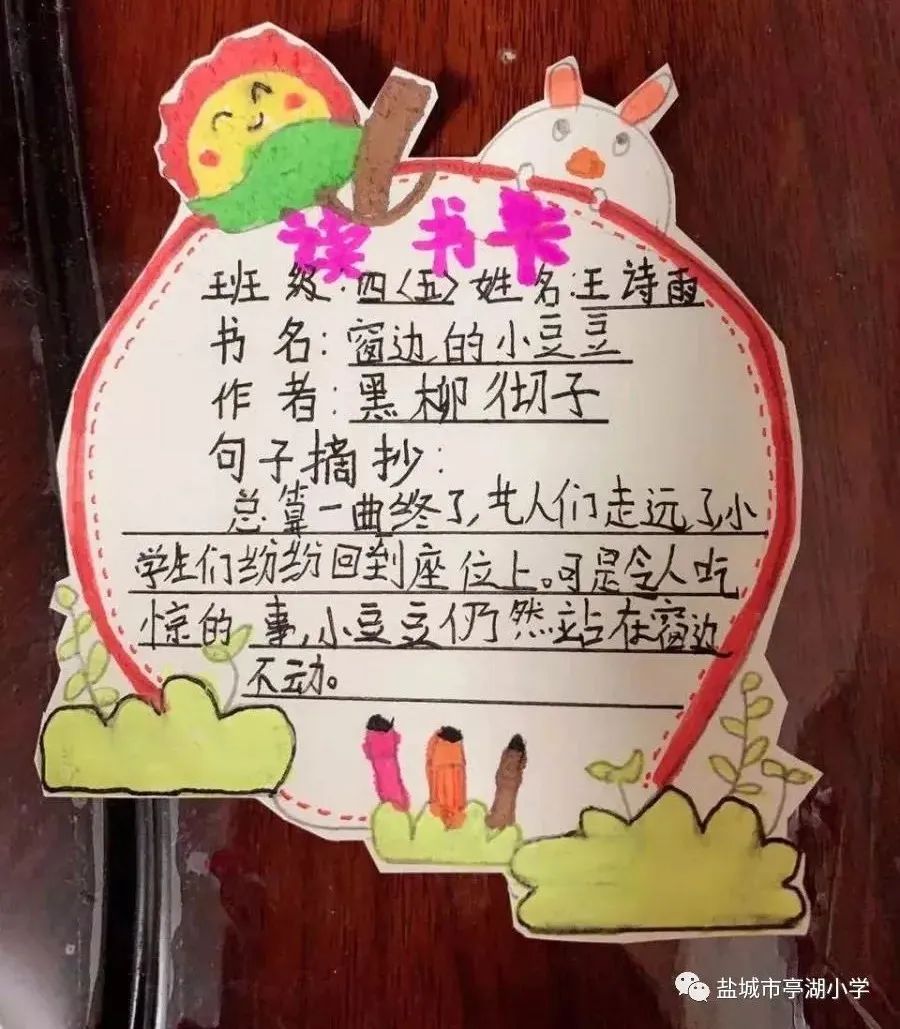 读书卡
班级:四〈五〉姓名:王诗雨
书名:窗边的小豆豆
作者:黑柳彻子
句子摘抄:
总算一曲终了,艺人们走远了,小
学生们纷纷回到座位上。可是令人吃
惊的事,小豆豆仍然站在窗边
不动。
盐城市亭湖小学